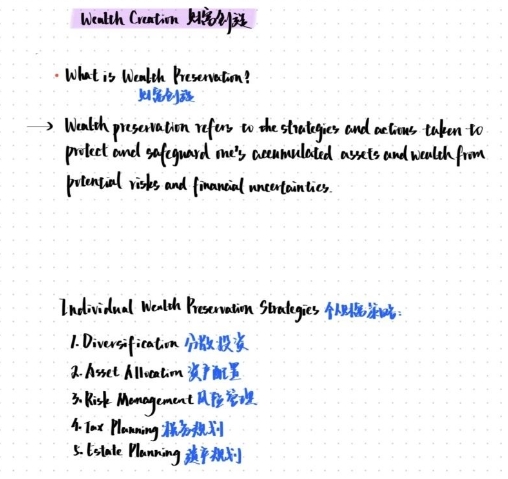 Wealth Creation 财富创造
• What is Wealth Preservation?
财富创造
→ Wealth preservation refers to the strategies and actions taken to
protect and safeguard one's accumulated assets and wealth from
potential risks and financial uncertainties.
Individual Wealth Preservation Strategies 个人财富策略:
1. Diversification 分散投资
2. Asset Allocation 资产配置
3. Risk Management 风险管理
4. Tax Planning 税务规划
5. Estate Planning 遗产规划